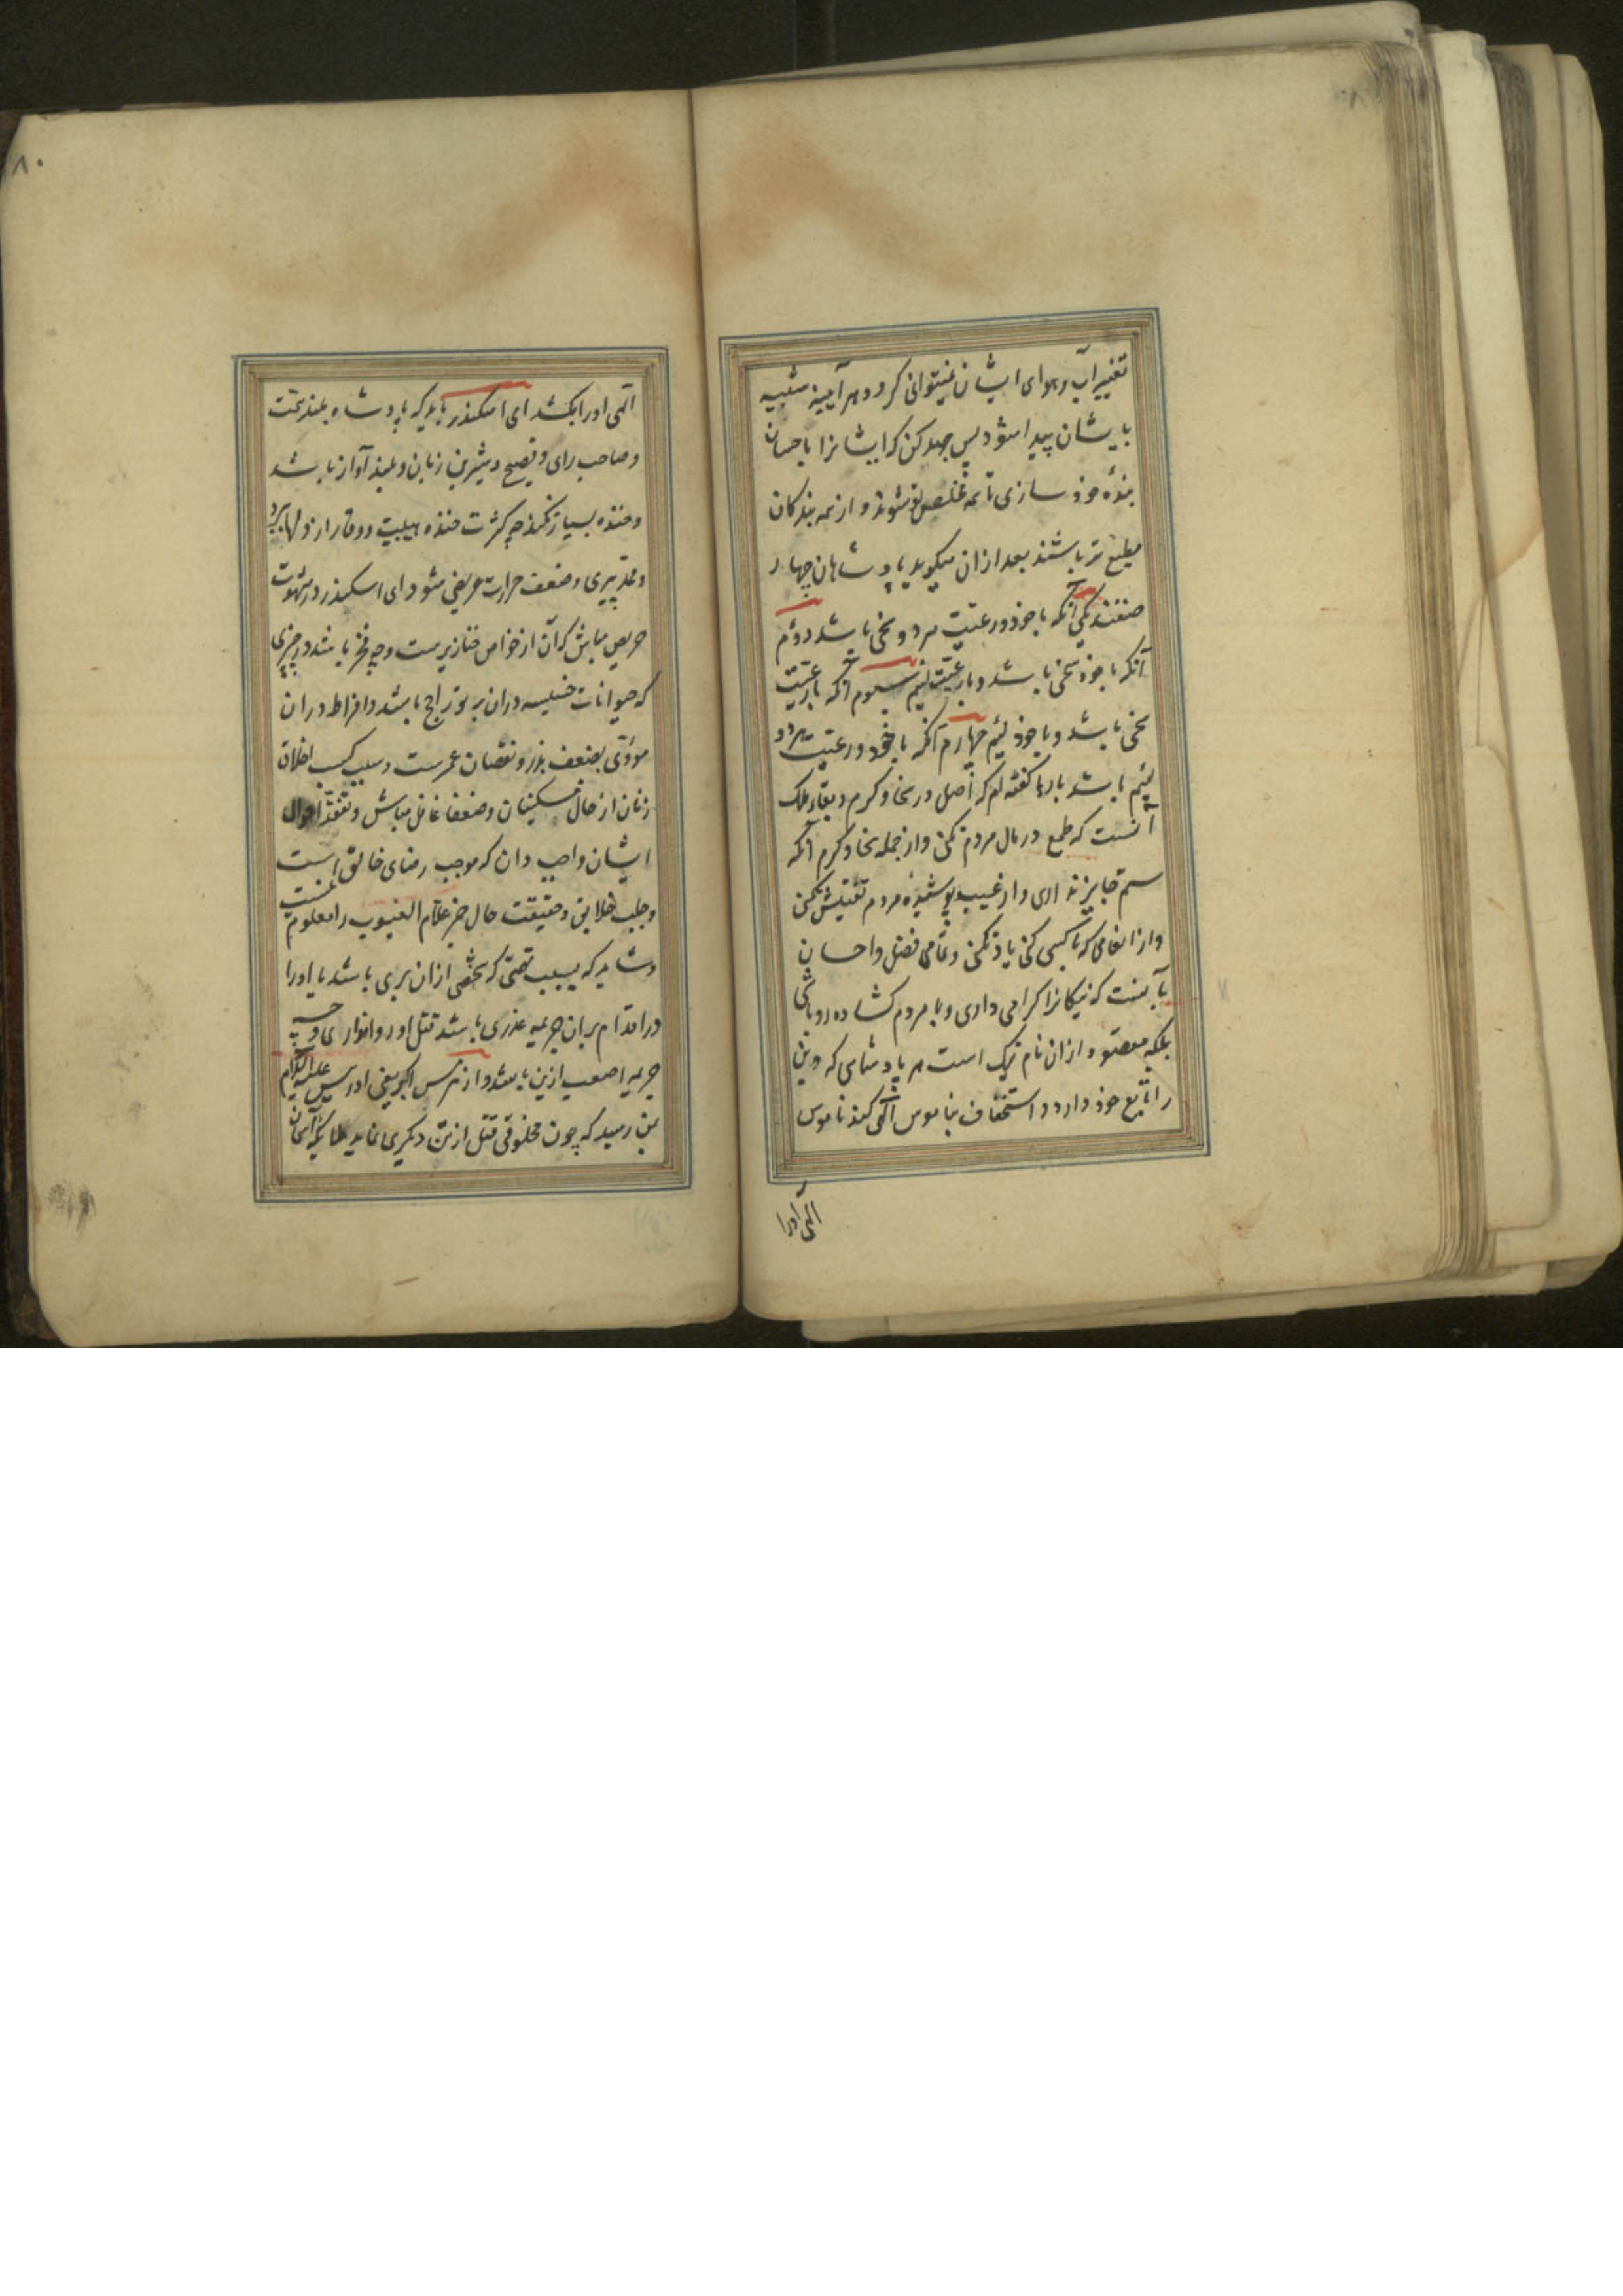 تغییر آب و هوای ایشان نمیتوانی کرد و هر آیینه مثبیه
بایشان پیدا شود پس جهد کن که ایشانرا باحسان
بندهٔ خود سازی تا همه مخلص تو شوند و از همه بندکان
مطیع تر باشند بعد از ان میکوید پادشاهان چهار
صنفند یکی آنکه با خود و رعیت هر دو سخی باشد دوّم
آنکه با خود سخی باشد و با رعیت لئیم سیوم آنکه با رعیت
سخی باشد و با خود لئیم چهارم آنکه با خود و رعیت هر دو
لئیم باشد بارها کفته ام که اصل در سخا و کرم و بقاء ملک
آنست که طمع در مال مردم نکنی و از جمله سخا و کرم آنکه
ستم جایز نداری و از عیب پوشیدهٔ مردم تفتیش نکنی
و از انعامی که با کسی کنی یاد نکنی و تمامی فضل و احسان
بآنست که نیکانرا کرامی داری و با مردم کشاده رو باشی
بلکه مقصود از ان نام نیک است هر پادشاهی که دین
را تابع خود دارد و استخفاف بناموس الهی کند ناموس
الهی اورا
۸۰
الهی اورا بکشد ای اسکندر باید که پادشاه بلند همّت
و صاحب رای و فصیح و شیرین زبان و بلند آواز باشد
و خنده بسیار نکند چه کثرت خنده هیبت و وقار از دلها ببرد
و پیری و ضعف حرارت غریزی شود ای اسکندر در شهوت
حریص مباش که آن از خواص خنازیرست و چه فخر باشد در چیزی
که حیوانات خسیسه در ان بر تو راجح باشد و افراط در ان
مؤدّی بضعف بدن و نقصان عمرست و سبب کسب اخلاق
زنان از حال مسکینان و ضعفا غافل مباش و تفقّد احوال
ایشان واجب دان که موجب رضای خالق است
و جلب خلایق و حقیقت حال جز علّام الغیوب را معلوم نیست
و شاید که بسبب تهمتی که شخصی از ان بری باشد یا اورا
در اقدام بران جریمه عذری باشد قتل او روا نداری و چه
جریمه اصعب ازین باشد و از هرمس اکبر یعنی ادریس علیه السّلام
بمن رسید که چون مخلوقی قتل از تن دیکری نماید ملائکه آسمان